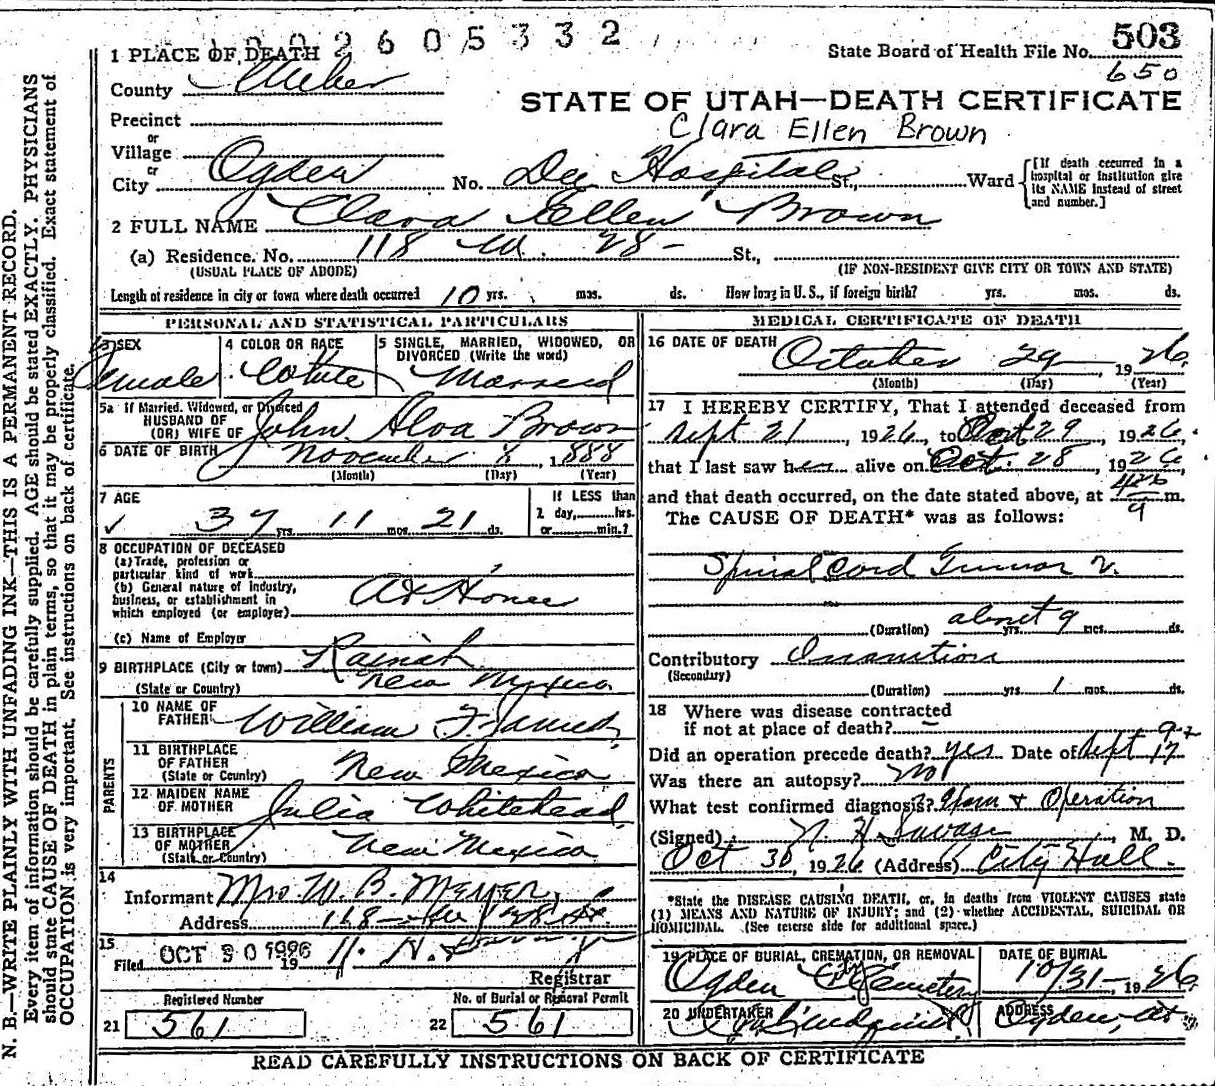 1 0 0 2 6 0 5 3 3 2
503
State Board of Health File No.
650
1 PLACE OF DEATH
County Weber
STATE OF UTAH—DEATH CERTIFICATE
Clara Ellen Brown
Precinct
or
Village
or
City Ogden No. Dee Hospital St., Ward
[If death occurred in a
hospital or institution give
its NAME instead of street
and number.]
2 FULL NAME Clara Ellen Brown
(a) Residence. No. 118 W. 28 St.,
(USUAL PLACE OF ABODE) (IF NON-RESIDENT GIVE CITY OR TOWN AND STATE)
Length of residence in city or town where death occurred 10 yrs. mos. ds. How long in U. S., if foreign birth? yrs. mos. ds.
PERSONAL AND STATISTICAL PARTICULARS
3 SEX
Female
4 COLOR OR RACE
White
5 SINGLE, MARRIED, WIDOWED, OR
DIVORCED (Write the word)
Married
5a If Married, Widowed, or Divorced
HUSBAND OF
(OR) WIFE OF John Alva Brown
6 DATE OF BIRTH November 8, 1888
(Month) (Day) (Year)
7 AGE
✓ 37 yrs. 11 mos. 21 ds.
If LESS than
1 day, hrs.
or min.?
8 OCCUPATION OF DECEASED
(a) Trade, profession or
particular kind of work
(b) General nature of industry,
business, or establishment in
which employed (or employer)
At Home
(c) Name of Employer
9 BIRTHPLACE (City or town)
(State or Country) New Mexico
PARENTS
10 NAME OF
FATHER William F. James
11 BIRTHPLACE
OF FATHER
(State or Country) New Mexico
12 MAIDEN NAME
OF MOTHER Julia Whitehead
13 BIRTHPLACE
OF MOTHER
(State or Country) New Mexico
14
Informant Mrs. W. B. Meyer
Address 118
15
Filed OCT 30 1926 19
Registrar
Registered Number
21 561
No. of Burial or Removal Permit
22 561
MEDICAL CERTIFICATE OF DEATH
16 DATE OF DEATH
October 29, 1926
(Month) (Day) (Year)
17 I HEREBY CERTIFY, That I attended deceased from
Sept 21, 1926, to Oct 29, 1926,
that I last saw her alive on Oct. 28, 1926,
and that death occurred, on the date stated above, at m.
The CAUSE OF DEATH* was as follows:
Spinal Cord Tumor
(Duration) about yrs. 9 mos. ds.
Contributory Inanition
(Secondary)
(Duration) yrs. 1 mos. ds.
18 Where was disease contracted
if not at place of death? —
Did an operation precede death? yes Date of Sept
Was there an autopsy? no
What test confirmed diagnosis? Exam & Operation
(Signed) Savage, M. D.
Oct 30, 1926 (Address) City Hall.
*State the DISEASE CAUSING DEATH, or, in deaths from VIOLENT CAUSES state
(1) MEANS AND NATURE OF INJURY; and (2) whether ACCIDENTAL, SUICIDAL OR
HOMICIDAL. (See reverse side for additional space.)
19 PLACE OF BURIAL, CREMATION, OR REMOVAL
Ogden City Cemetery
DATE OF BURIAL
10/31-, 1926
20 UNDERTAKER
Lindquist
ADDRESS
Ogden, Ut
READ CAREFULLY INSTRUCTIONS ON BACK OF CERTIFICATE
N. B.—WRITE PLAINLY WITH UNFADING INK—THIS IS A PERMANENT RECORD.
Every item of information should be carefully supplied. AGE should be stated EXACTLY. PHYSICIANS
should state CAUSE OF DEATH in plain terms, so that it may be properly classified. Exact statement of
OCCUPATION is very important. See instructions on back of certificate.